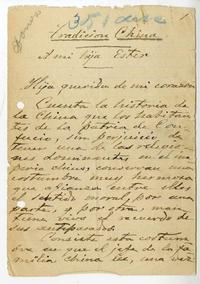 1
Tradicion China
A mi hija Ester
Hija querida de mi corazon
Cuenta la historia de
la China que los habitan-
tes de la patria de Con-
fucio, sin perjuicio de
tener una de las religio-
nes dominantes en el im-
perio chino, conservan una
costumbre muy hermosa
que afianza entre ellos
el sentido moral, por una
parte, y por otra, man-
tiene vivo el recuerdo de
sus antepasados.
Consiste esta costum-
bre en que el jefe de la fa-
milia china lee, una vez